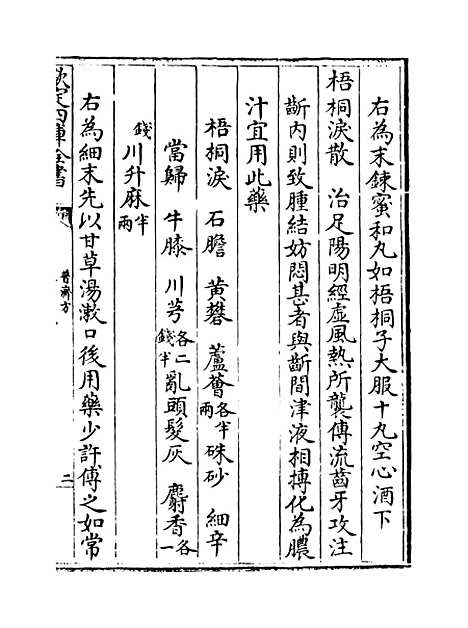 右為末鍊蜜和丸如梧桐子大服十丸空心酒下
梧桐淚散　治足陽明經虛風熱所襲傳流齒牙攻注
齗内則致腫結妨悶甚者與齗間津液相搏化為膿
汁宜用此藥
梧桐淚　石膽　黄礬　蘆薈各半兩　硃砂　細辛
當歸　牛膝　川芎各二錢半　亂頭髮灰　麝香各一
錢　川升麻半兩
右為細末先以甘草湯漱口後用藥少許傅之如常
欽定四庫全書
普濟方
二